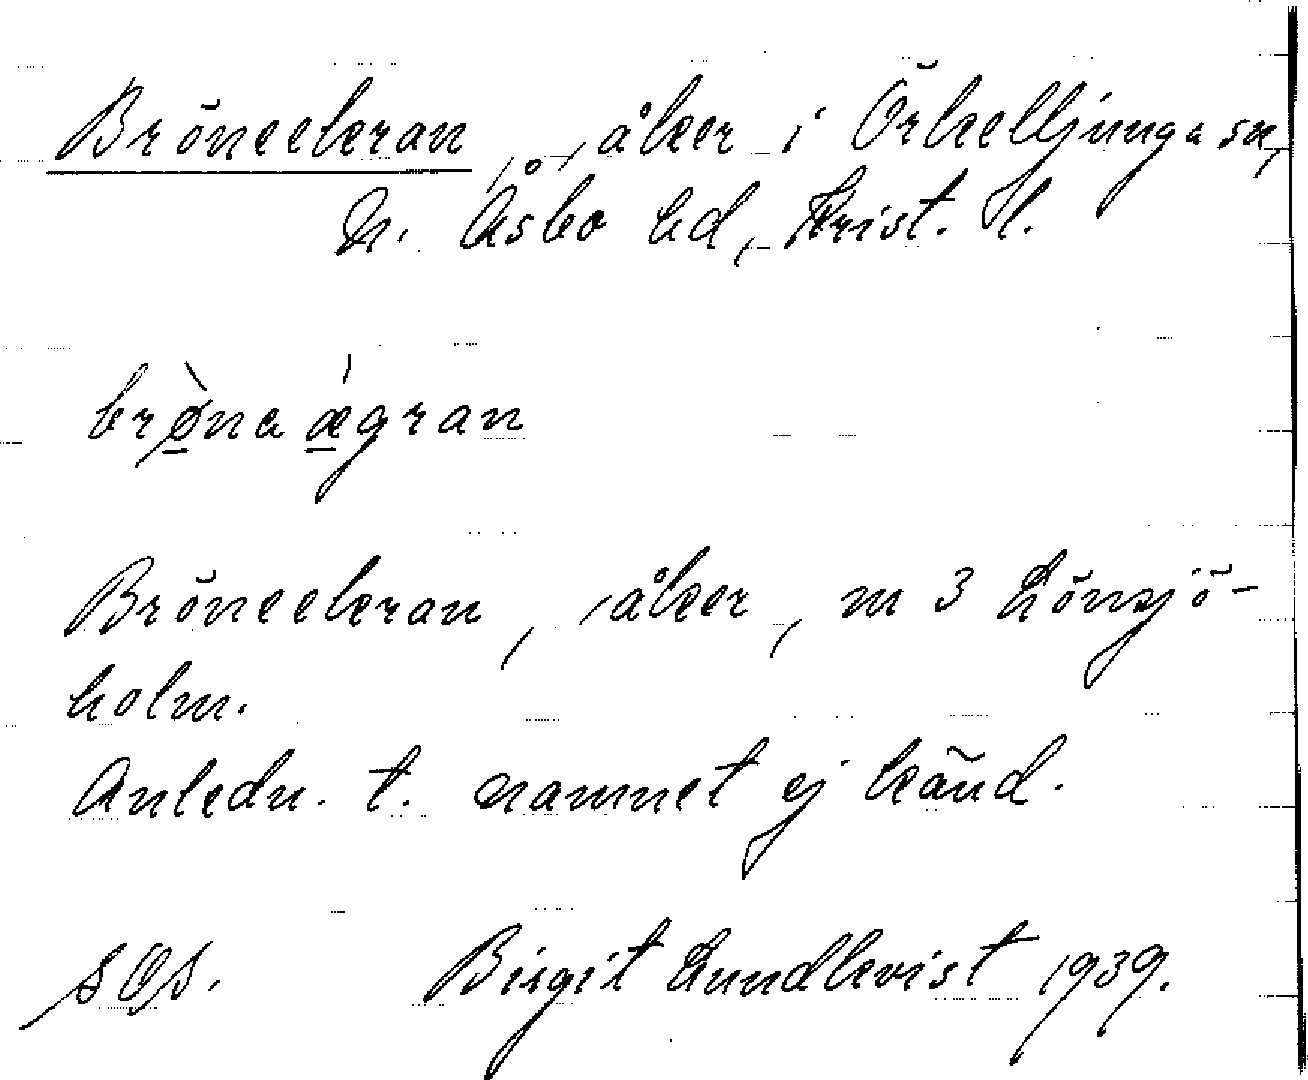 Bröneekran, åker i Örkelljunga sn,
N. Åsbo hd, Krist. l.
brø̀na ǽgran
Bröneekran, åker, m 3 Lönsjö-
holm.
Anledn. t. namnet ej känd.
SOS. Birgit Lundkvist 1939.